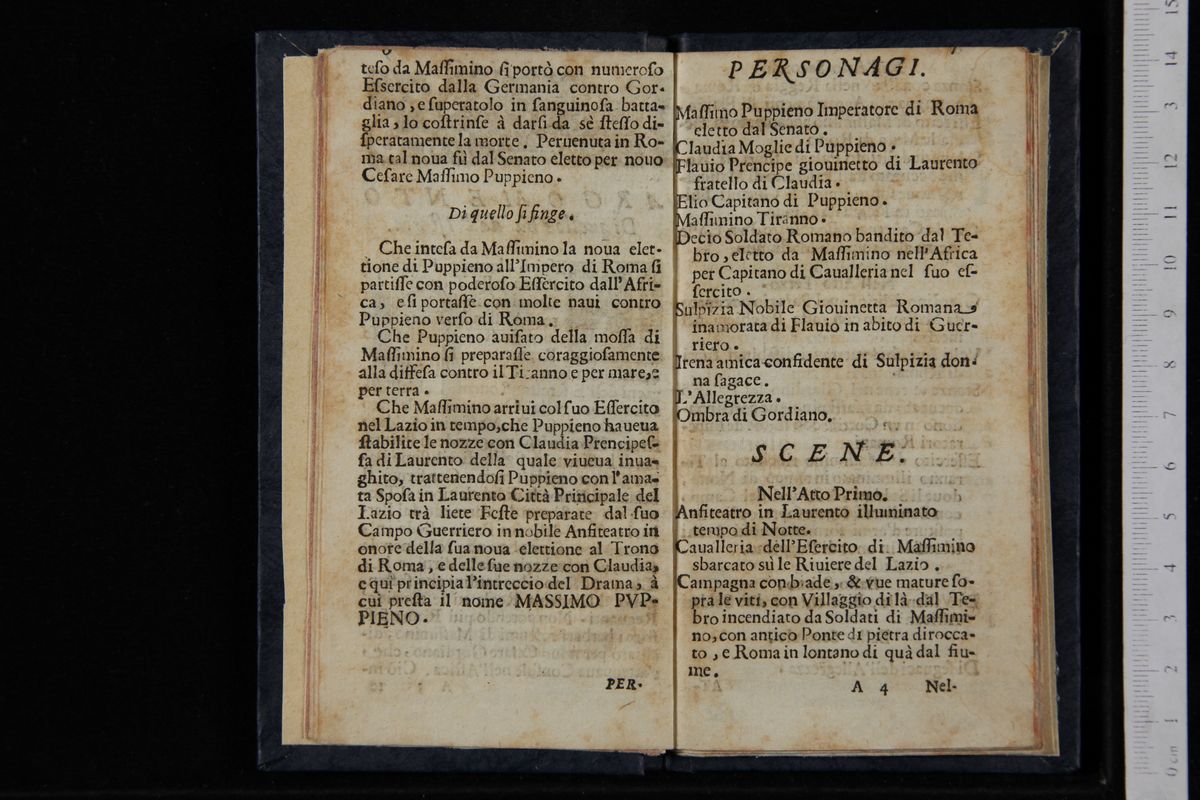 teſo da Maſſimino ſi portò con numeroſo
Eſſercito dalla Germania contro Gor-
diano, e ſuperatolo in ſanguinoſa batta-
glia, lo coſtrinſe à darſi da sè ſteſſo di-
ſperatamente la morte. Peruenuta in Ro-
ma tal noua fù dal Senato eletto per nouo
Ceſare Maſſimo Puppieno.
Di quello ſi finge.
Che inteſa da Maſſimino la noua elet-
tione di Puppieno all'Impero di Roma ſi
partiſſe con poderoſo Eſſercito dall'Afri-
ca, e ſi portaſſe con molte naui contro
Puppieno verſo di Roma.
Che Puppieno auiſato della moſſa di
Maſſimino ſi preparaſſe coraggioſamente
alla diffeſa contro il Tiranno e per mare, e
per terra.
Che Maſſimino arriui col ſuo Eſſercito
nel Lazio in tempo, che Puppieno haueua
ſtabilite le nozze con Claudia Prencipeſ-
ſa di Laurento della quale viueua inua-
ghito, trattenendoſi Puppieno con l'ama-
ta Spoſa in Laurento Città Principale del
Lazio trà liete Feſte preparate dal ſuo
Campo Guerriero in nobile Anfiteatro in
onore della ſua noua elettione al Trono
di Roma, e delle ſue nozze con Claudia,
e qui principia l'intreccio del Drama, à
cui preſta il nome MASSIMO PVP-
PIENO.
PER-
PERSONAGI.
Maſſimo Puppieno Imperatore di Roma
eletto dal Senato.
Claudia Moglie di Puppieno.
Flauio Prencipe giouinetto di Laurento
fratello di Claudia.
Elio Capitano di Puppieno.
Maſſimino Tiranno.
Decio Soldato Romano bandito dal Te-
bro, eletto da Maſſimino nell'Africa
per Capitano di Caualleria nel ſuo eſ-
ſercito.
Sulpizia Nobile Giouinetta Romana,
inamorata di Flauio in abito di Guer-
riero.
Irena amica confidente di Sulpizia don-
na ſagace.
L'Allegrezza.
Ombra di Gordiano.
SCENE.
Nell'Atto Primo.
Anfiteatro in Laurento illuminato
tempo di Notte.
Caualleria dell'Eſercito di Maſſimino
sbarcato sù le Riuiere del Lazio.
Campagna con biade, & vue mature ſo-
pra le viti, con Villaggio di là dal Te-
bro incendiato da Soldati di Maſſimi-
no, con antico Ponte di pietra dirocca-
to, e Roma in lontano di quà dal fiu-
me.
A 4 Nel-
0 cm 1 2 3 4 5 6 7 8 9 10 11 12 3 14 15